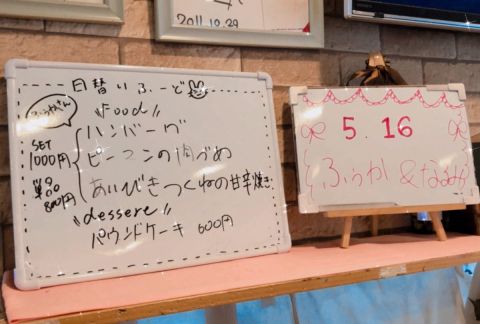 2011.10.29
日替りふーど
"Food"
SET
1000円
ハンバーグ
ピーマンの肉づめ
単品
800円
あいびきつくねの甘辛焼き
"dessere"
パウンドケーキ 600円
5.16
ふうか&なるみ